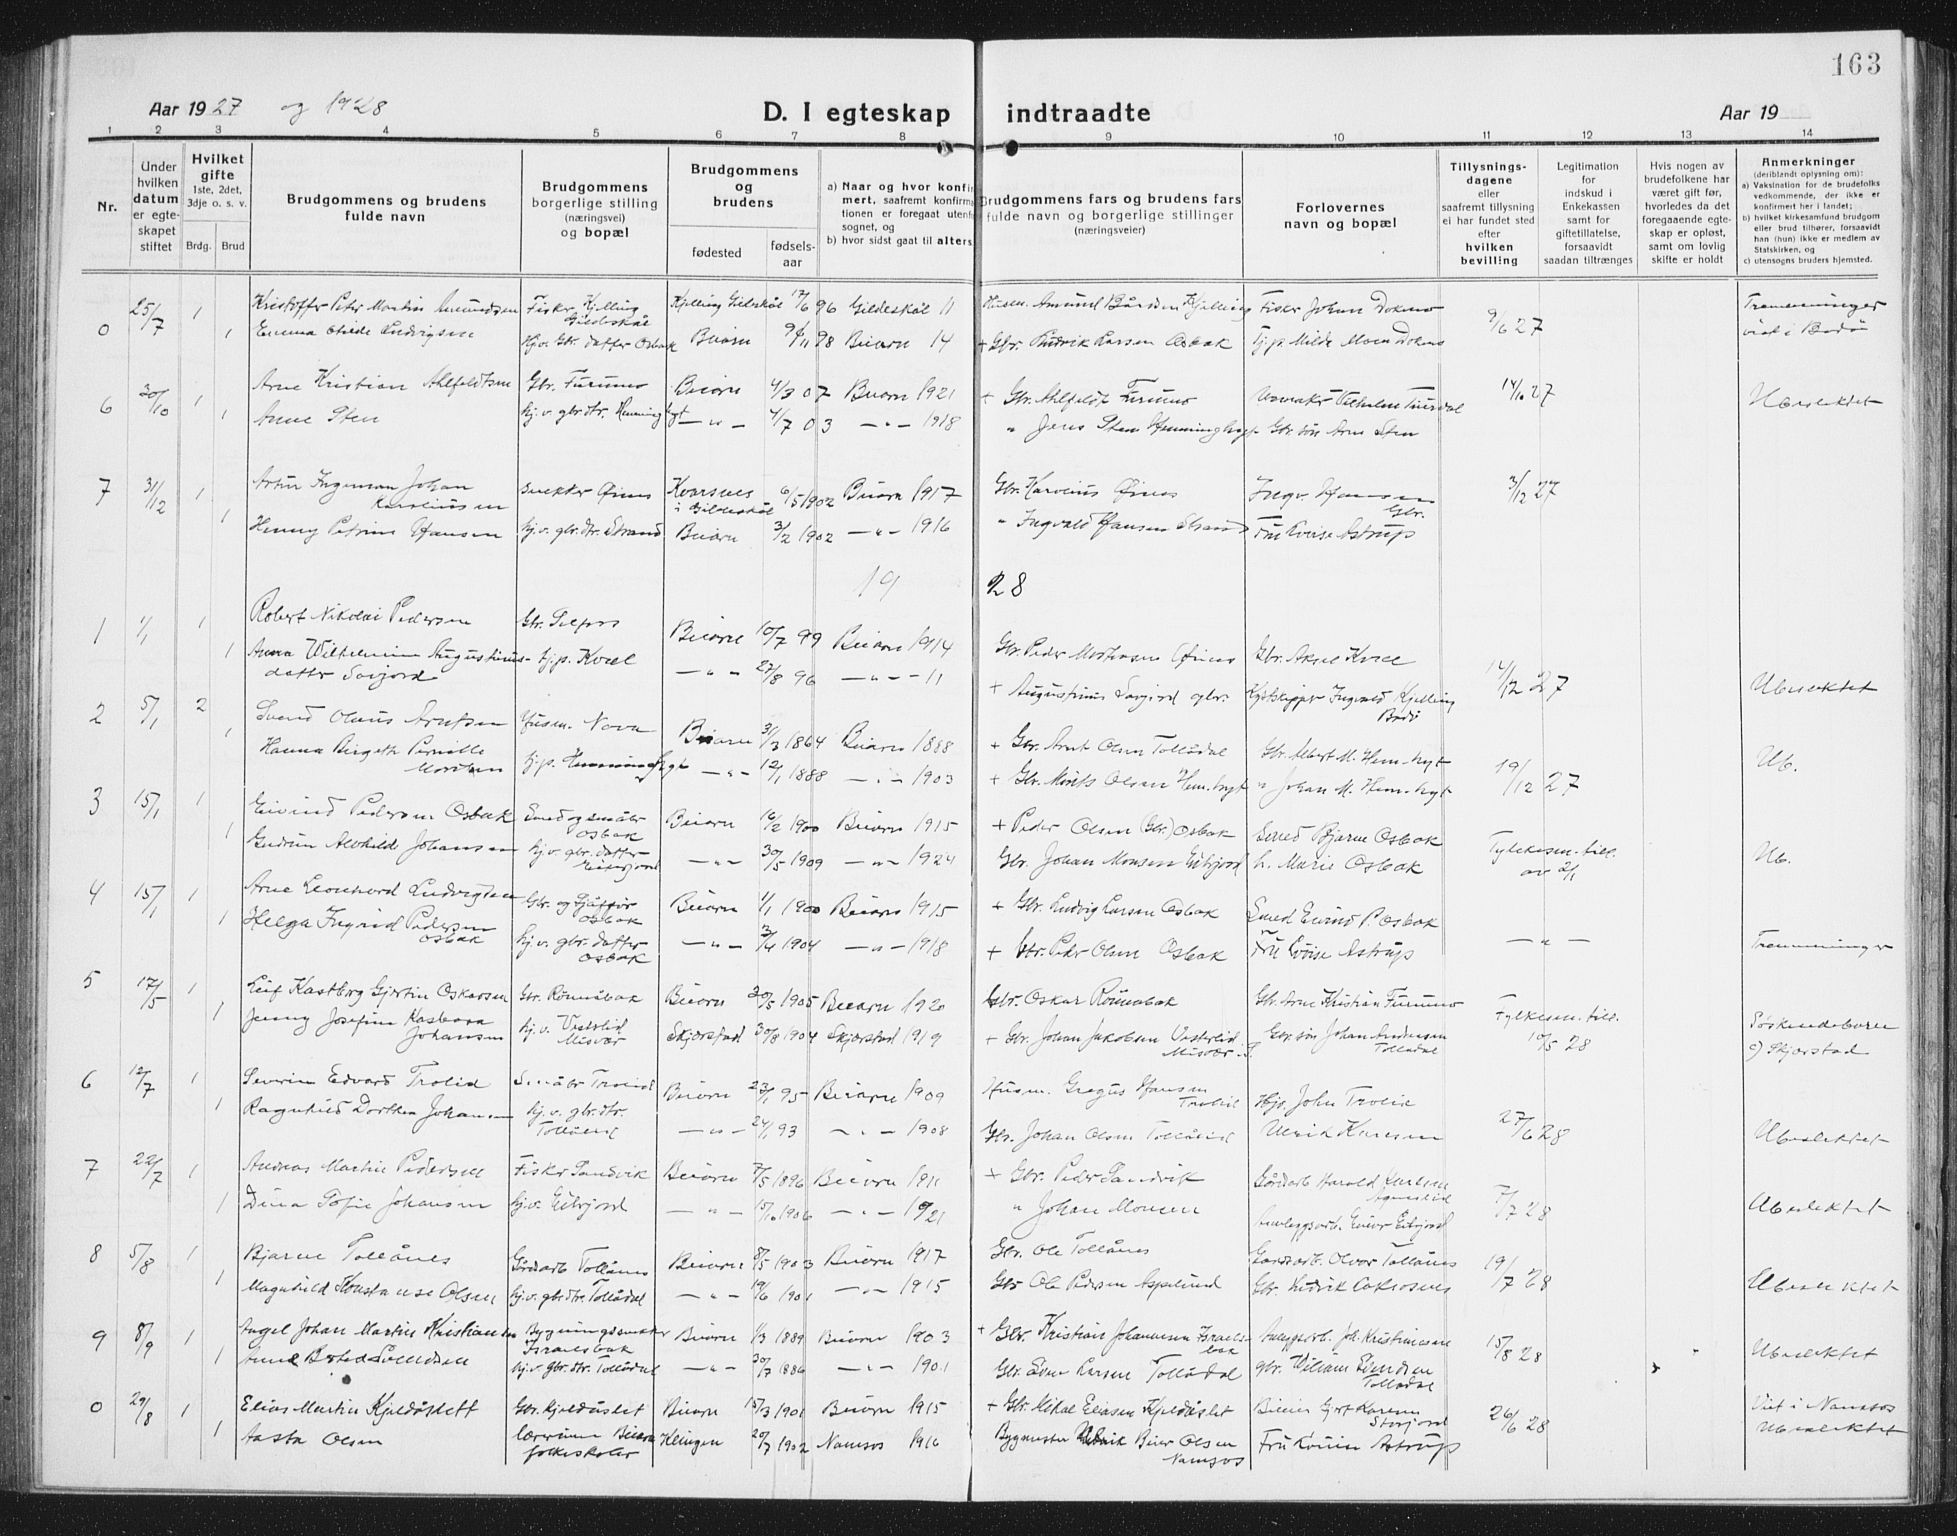 163
Aar 1927 og 1928
D. I egteskap indtraadte
Aar 19
1 2 3 4 5 6 7 8 9 10 11 12 13 14
Nr.
Under hvilken datum er egteskapet stiftet
Hvilket gifte
1ste, 2det, 3dje o. s. v.
Brdg. Brud
Brudgommens og brudens fulde navn
Brudgommens borgerlige stilling (næringsvei) og bopæl
Brudgommens og brudens
fødested
fødselsaar
a) Naar og hvor konfirmert, saafremt konfirmationen er foregaat utenfor sognet, og
b) hvor sidst gaat til alters
Brudgommens fars og brudens fars fulde navn og borgerlige stillinger (næringsveier)
Forlovernes navn og bopæl
Tillysningsdagene eller saafremt tillysning ei har fundet sted efter hvilken bevilling
Legitimation for indskud i Enkekassen samt for giftetillatelse, forsaavidt saadan tiltrænges
Hvis nogen av brudefolkene har været gift før, hvorledes da det foregaaende egteskap er opløst, samt om lovlig skifte er holdt
Anmerkninger
(deriblandt oplysning om):
a) Vaksination for de brudefolks vedkommende, der ikke er konfirmert her i landet;
b) hvilket kirkesamfund brudgom eller brud tilhører, forsaavidt han (hun) ikke er medlem av Statskirken, og
c) utensogns bruders hjemsted.
0 25/7 1 Kristoffer Peder Martin Amundsen Fisker Kjelling Gildeskål Kjelling Gildeskål 17/6 96 Gildeskål 11 Husm. Amund Bårdsen Kjelling Fisker Johan 9/6 27 Tremenninger
1 Emma Ludvigsen Hjv. Gbr. datter Osbak Beiarn 98 Beiarn 14 + Gbr. Ludvik Larsen Osbak Tj.p. Milde Moen viet i Bodø
6 30/10 1 Arne Kristian Ahlfeldtsen Gbr. Furumo Beiarn 4/3 07 Beiarn 1921 + Gbr. Ahlfeldt Furumo Vilhelm 14/10 27 Ubeslektet
1 Anne Sten hj.v. gbr.dtr. 4/7 03 1918 " Jens Sten Gbr. søn Arne Sten
7 31/12 1 Artur Ingeman Johan Karoliussen Snekker Øines i Gildeskål 6/5 1902 Beiarn 1917 Gbr. Karolius Øines Ingv. Hansen Gbr. 3/12 27
1 Henny Petrine Hansen hj.v. gbr.dtr. Strand Beiarn 3/2 1902 1916 " Ingvald Hansen Strand Fru Lovise Astrup
1928
1 1/1 1 Robert Nikolai Pedersen Gbr. Selfors Beiarn 10/7 99 Beiarn 1914 Gbr. Peder Øines Gbr. Aksel Kvæl 14/12 27
1 Anna Vilhelmine Augustinusdatter Savjord tj.p. Kvæl 27/8 96 11 + Augustinus Savjord gbr. Ingvald Kjelling Bodø Ubeslektet
2 5/1 2 Svend Olaus Arntsen Husm. Nova Beiarn 31/3 1864 Beiarn 1888 + Gbr. Arnt Olsen Tollådal Gbr. Albert M. Hem.hyt 19/12 27 Ub.
1 Hanna Birgeth Pernille Moritsen tj.p. 12/1 1888 1903 + Gbr. Morits Olsen Hem.hyt " Johan M. Hem.hyt
3 15/1 1 Eivind Pedersen Osbak Smed og småbr. Osbak Beiarn 16/2 1900 Beiarn 1915 + Peder Olsen (Gbr.) Osbak Smed Bjarne Osbak Fylkesm. till. av 2/1 Ub.
1 Gudrun Alvhilde Johansen hj.v. gbr. datter Eiterjord 30/5 1909 1924 Gbr. Johan Monsen Eiterjord h. Marie Osbak
4 15/1 1 Arne Leonhard Ludvigsen Gbr. og Osbak Beiarn 1/1 1900 Beiarn 1915 + Gbr. Ludvig Larsen Osbak Smed Eivind P. Osbak — " —
1 Helga Ingrid Pedersen Osbak hj.v. gbr. datter Osbak 1904 1918 + Gbr. Peder Olsen Osbak Fru Lovise Astrup Tremenninger
5 17/5 1 Leif Kastberg Gjertin Oskarsen Gbr. Rønnåbak Beiarn 20/5 1905 Beiarn 1920 Gbr. Oskar Rønnåbak Gbr. Arne Kristian Furumo Fylkesm. till. 10/5 28 Søskendebarn
1 Jenny Josefine Johansen hj.v. Vesterlid Misvær Skjerstad 30/8 1904 Skjerstad 1919 + Gbr. Johan Jakobsen Vesterlid Misvær Gbr. søn Johan Andersen Tollådal c) Skjerstad
6 12/7 1 Severin Edvard Trolid Småbr. Trolid Beiarn 23/1 95 Beiarn 1909 Husm. Gregus Hansen Trolid John Trolid 27/6 28 Ubeslektet
1 Ragnhild Dorthea Johansen hj.v. gbr.dtr. Tollånes 24/1 93 1908 Gbr. Johan Olsen Tollånes Ulrik
7 22/7 1 Andreas Martin Pedersen Fisker Sandvik Beiarn 7/5 1896 Beiarn 1911 + Gbr. Peder Sandvik Gårdarb. Harald 7/7 28 Ubeslektet
1 Dina Sofie Johansen hj.v. Eiterjord 15/10 1906 1921 " Johan Monsen Anleggsarb. Einar Eiterjord
8 5/8 1 Bjarne Tollånes Gårdarb. Tollånes Beiarn 8/5 1903 Beiarn 1917 Gbr. Ole Tollånes Gårdarb. Olver Tollånes 19/7 28 Ubeslektet
1 Magnhild Konstanse Olsen hj.v. gbr.dtr. Tollådal 19/6 1901 1915 Gbr. Ole Pedersen Asplund Gbr.
9 8/9 1 Angel Johan Martin Kristiansen Bygningssnekker Israelsbak Beiarn 1/3 1889 Beiarn 1903 + Gbr. Kristian Johannesen Israelsbak Joh. Kristiansen 15/8 28 Ubeslektet
1 hj.v. gbr.dtr. Tollådal 30/7 1886 1901 Gbr. Larsen Tollådal gbr. Tollådal
0 29/8 1 Elias Martin Kjeldåslett Gbr. Kjeldåslet Beiarn 15/3 1901 Beiarn 1915 + Gbr. Mikal Eliasen Kjeldåslet Storjord 26/6 28 Viet i Namsos
1 Aasta Olsen lærerinne Beiarn folkeskoler Klingen 20/7 1902 Namsos 1916 Bygmester Olsen Namsos Fru Lovise Astrup Ubeslektet